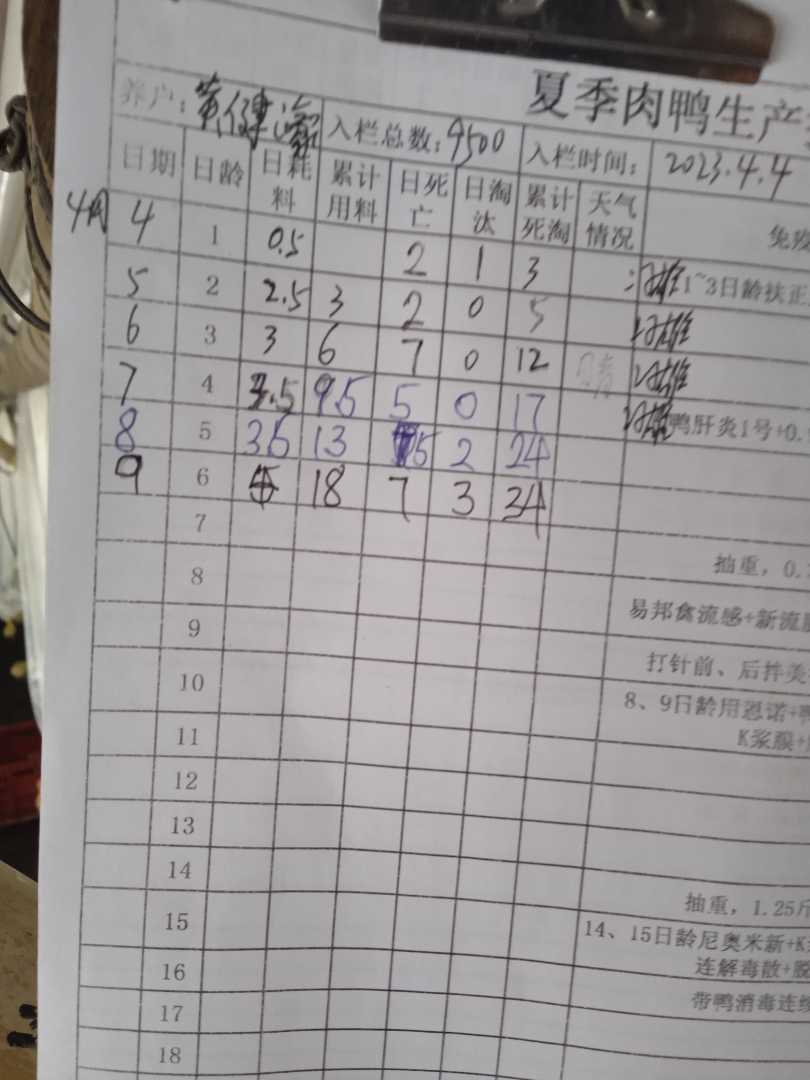 夏季肉鸭生产
养户: 入栏总数: 9500 入栏时间: 2023.4.4
日期 日龄 日耗料 累计用料 日死亡 日淘汰 累计死淘 天气情况 免疫
4月 4 1 0.5 2 1 3 1~3日龄扶正
5 2 2.5 3 2 0 5
6 3 3 6 7 0 12 晴
7 4 3.5 9.5 5 0 17 鸭肝炎1号+0.
8 5 3.5 13 5 2 24
9 6 18 7 3 34
7 抽重，0.
8 易邦禽流感+新流
9 打针前、后拌美
10 8、9日龄用恩诺+鸭
K浆膜+
11
12
13
14 抽重，1.25斤
15 14、15日龄尼奥米新+K
连解毒散+脱
16 带鸭消毒连续
17
18